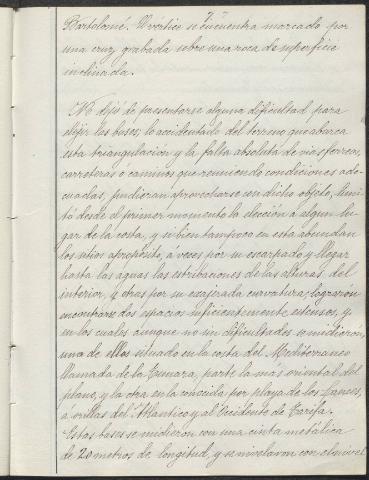 Bartolomé. El vórtice se encuentra marcado por
una cruz grabada sobre una roca de superficie
inclinada.
No dejó de presentarse alguna dificultad para
elijir las bases; lo accidentado del terreno que abarca
esta triangulación y la falta absoluta de vias ferreas,
carreteras o caminos que reuniendo condiciones ade-
cuadas, pudieran aprovecharse con dicho objeto, limi-
tó desde el primer momento la elección á algun lu-
gar de la costa, y si bien tampoco en esta abundan
los sitios apropósito, á veces por su escarpado y llegar
hasta las aguas las estribaciones de las alturas del
interior, y otras por su exajerada curvatura, lograron
encontrarse dos espacios suficientemente estensos, y
en los cuales aunque no sin dificultades se midieron,
una de ellas situado en la costa del Mediterraneo
llamada de la Tunara, parte la más oriental del
plano, y la otra en la conocida por playa de los Lances,
á orillas del Atlántico y al Occidente de Tarifa.
Estas bases se midieron con una cinta metálica
de 20 metros de longitud, y se nivelaron con el nivel